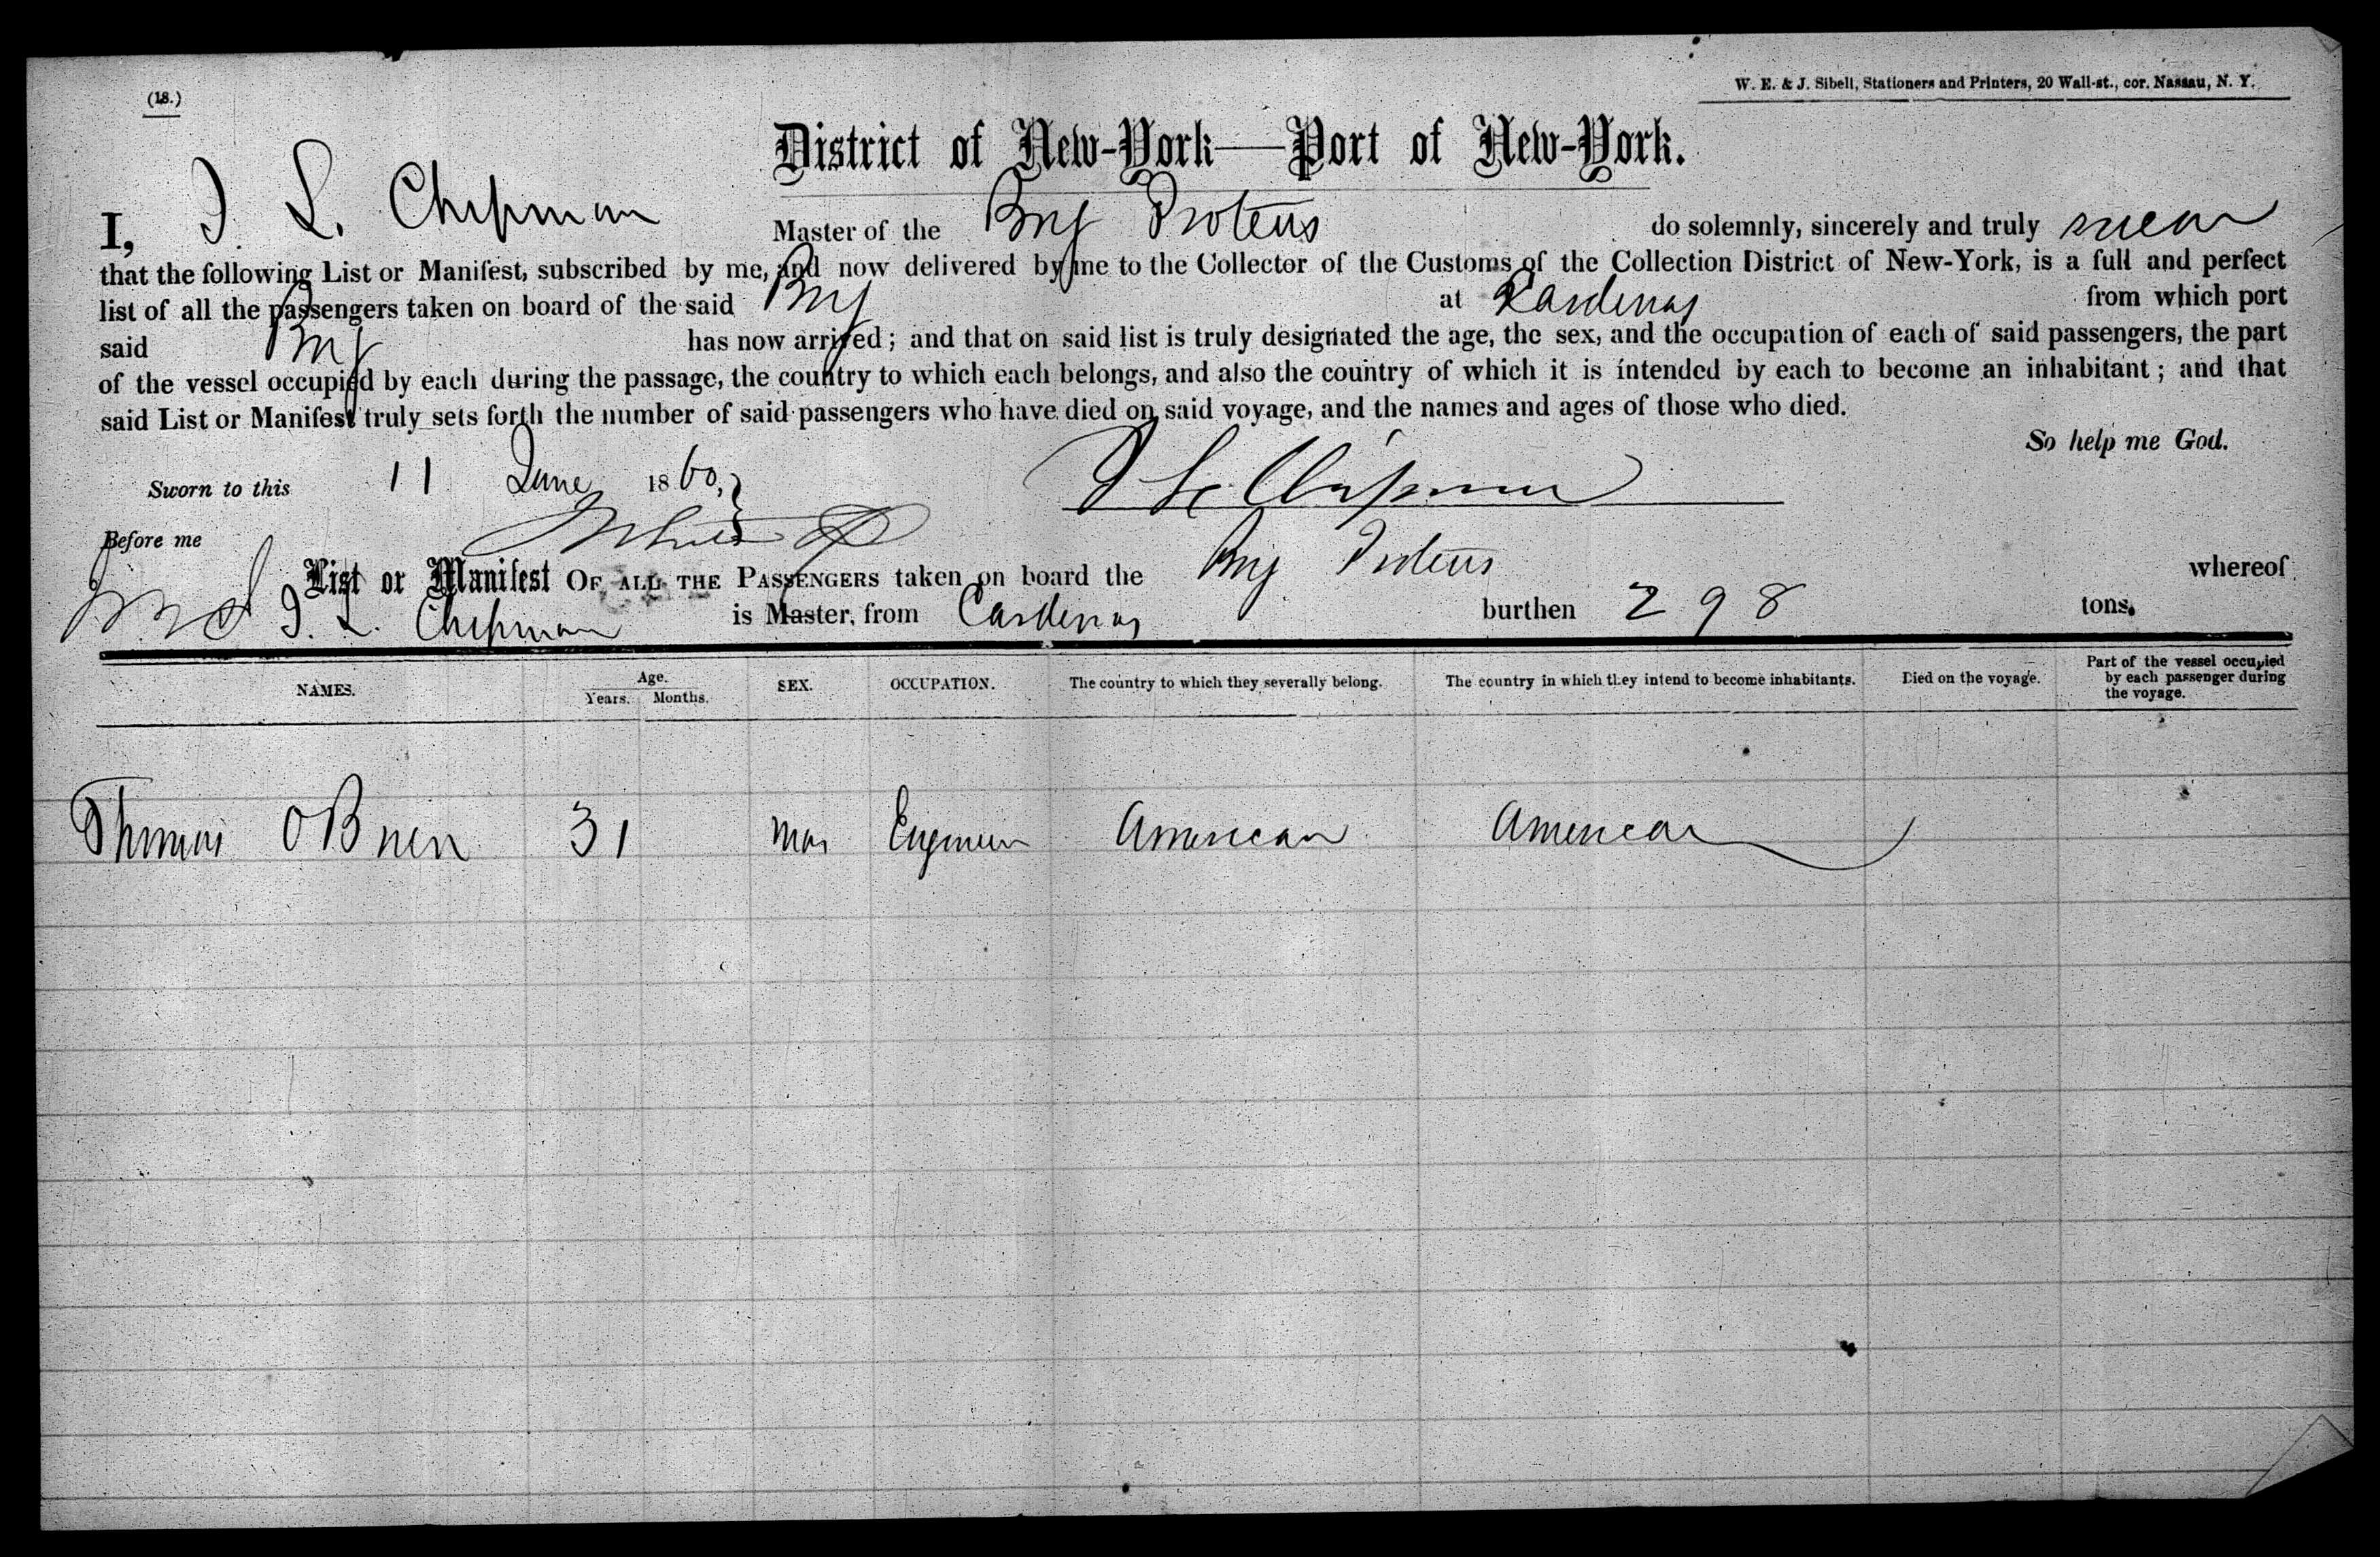 (18.)
W. E. & J. Sibell, Stationers and Printers, 20 Wall-st., cor. Nassau, N. Y.
District of New-York—Port of New-York.
I, J. L. Chipman Master of the Brig Proteus do solemnly, sincerely and truly swear
that the following List or Manifest, subscribed by me, and now delivered by me to the Collector of the Customs of the Collection District of New-York, is a full and perfect
list of all the passengers taken on board of the said Brig at Cardenas from which port
said Brig has now arrived; and that on said list is truly designated the age, the sex, and the occupation of each of said passengers, the part
of the vessel occupied by each during the passage, the country to which each belongs, and also the country of which it is intended by each to become an inhabitant; and that
said List or Manifest truly sets forth the number of said passengers who have died on said voyage, and the names and ages of those who died.
So help me God.
Sworn to this 11 June 1860, J L Chipman
Before me
List or Manifest OF ALL THE PASSENGERS taken on board the Brig Proteus whereof
J. L. Chipman is Master, from Cardenas burthen 298 tons.
NAMES. Age. Years. Months. SEX. OCCUPATION. The country to which they severally belong. The country in which they intend to become inhabitants. Died on the voyage. Part of the vessel occupied by each passenger during the voyage.
Thomas OBrien 31 Mas Engineer American American